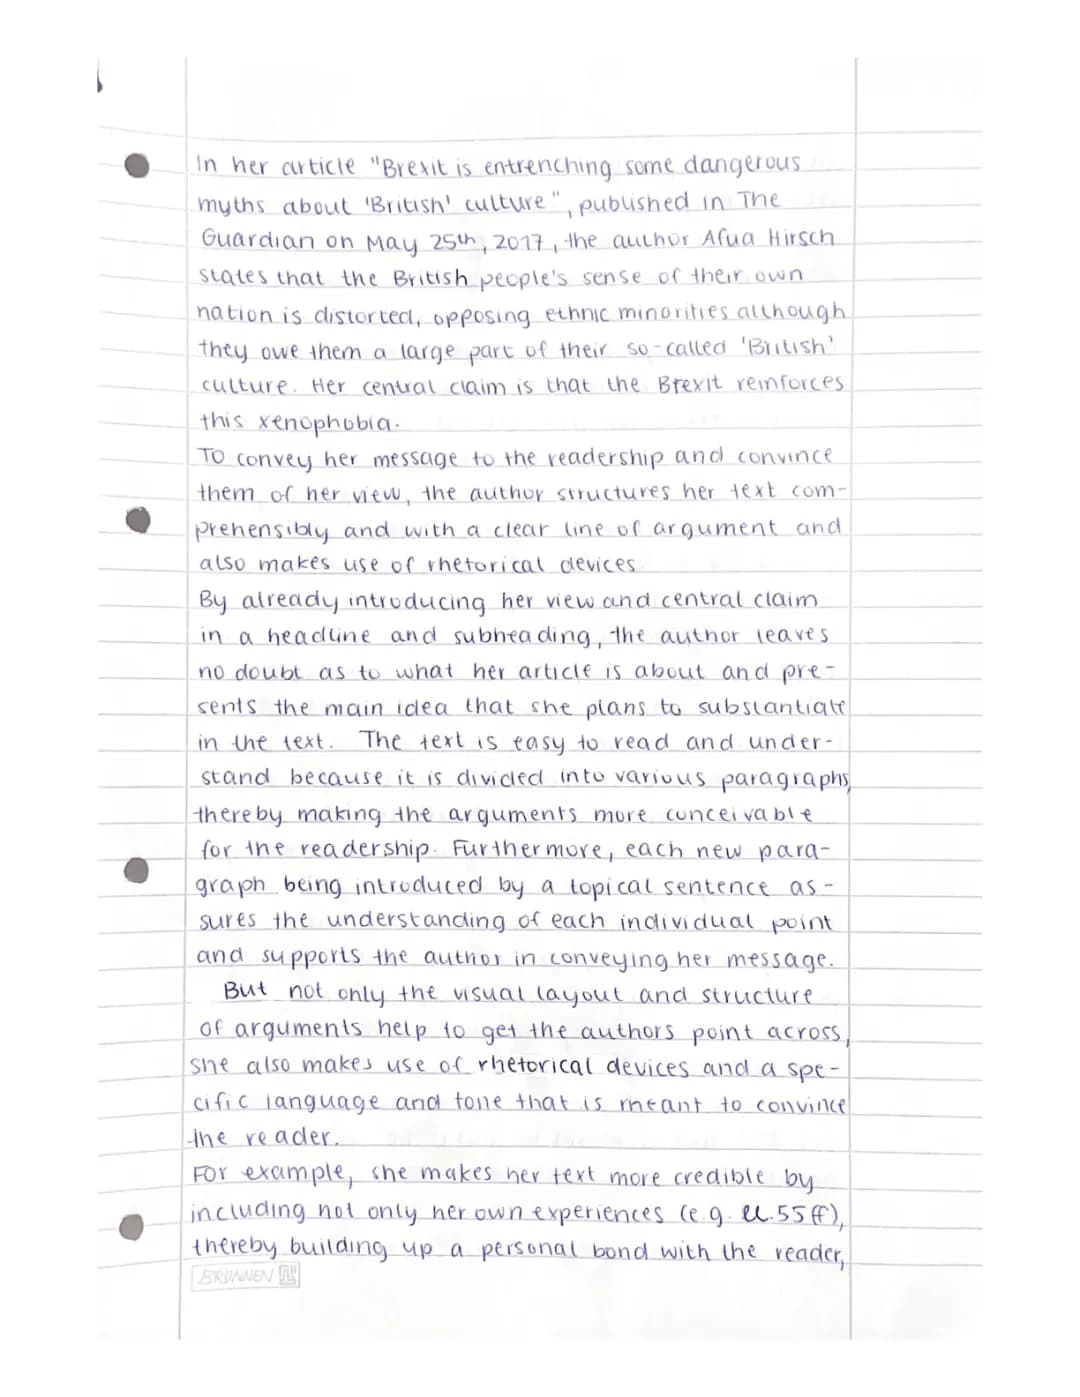 In her article "Brexit is entrenching some dangerous
myths about 'British' culture", published in The
Guardian on May 25th, 2017, the author Afua Hirsch
states that the British people's sense of their own
nation is distorted, opposing ethnic minorities although
they owe them a large part of their so-called 'British'
culture. Her central claim is that the Brexit reinforces
this xenophobia.
To convey her message to the readership and convince
them of her view, the author structures her text com-
prehensibly and with a clear line of argument and
also makes use of rhetorical devices.
By already introducing her view and central claim
in a headline and subheading, the author leaves
no doubt as to what her article is about and pre-
sents the main idea that she plans to substantiate
in the text. The text is easy to read and under-
stand because it is divided into various paragraphs,
thereby making the arguments more conceivable
for the readership. Furthermore, each new para-
graph being introduced by a topical sentence as-
sures the understanding of each individual point
and supports the author in conveying her message.
But not only the visual layout and structure
of arguments help to get the authors point across,
she also makes use of rhetorical devices and a spe-
cific language and tone that is meant to convince
the reader.
For example, she makes her text more credible by
including not only her own experiences (e.g. ll.55ff),
thereby building up a personal bond with the reader,
BRUNNEN